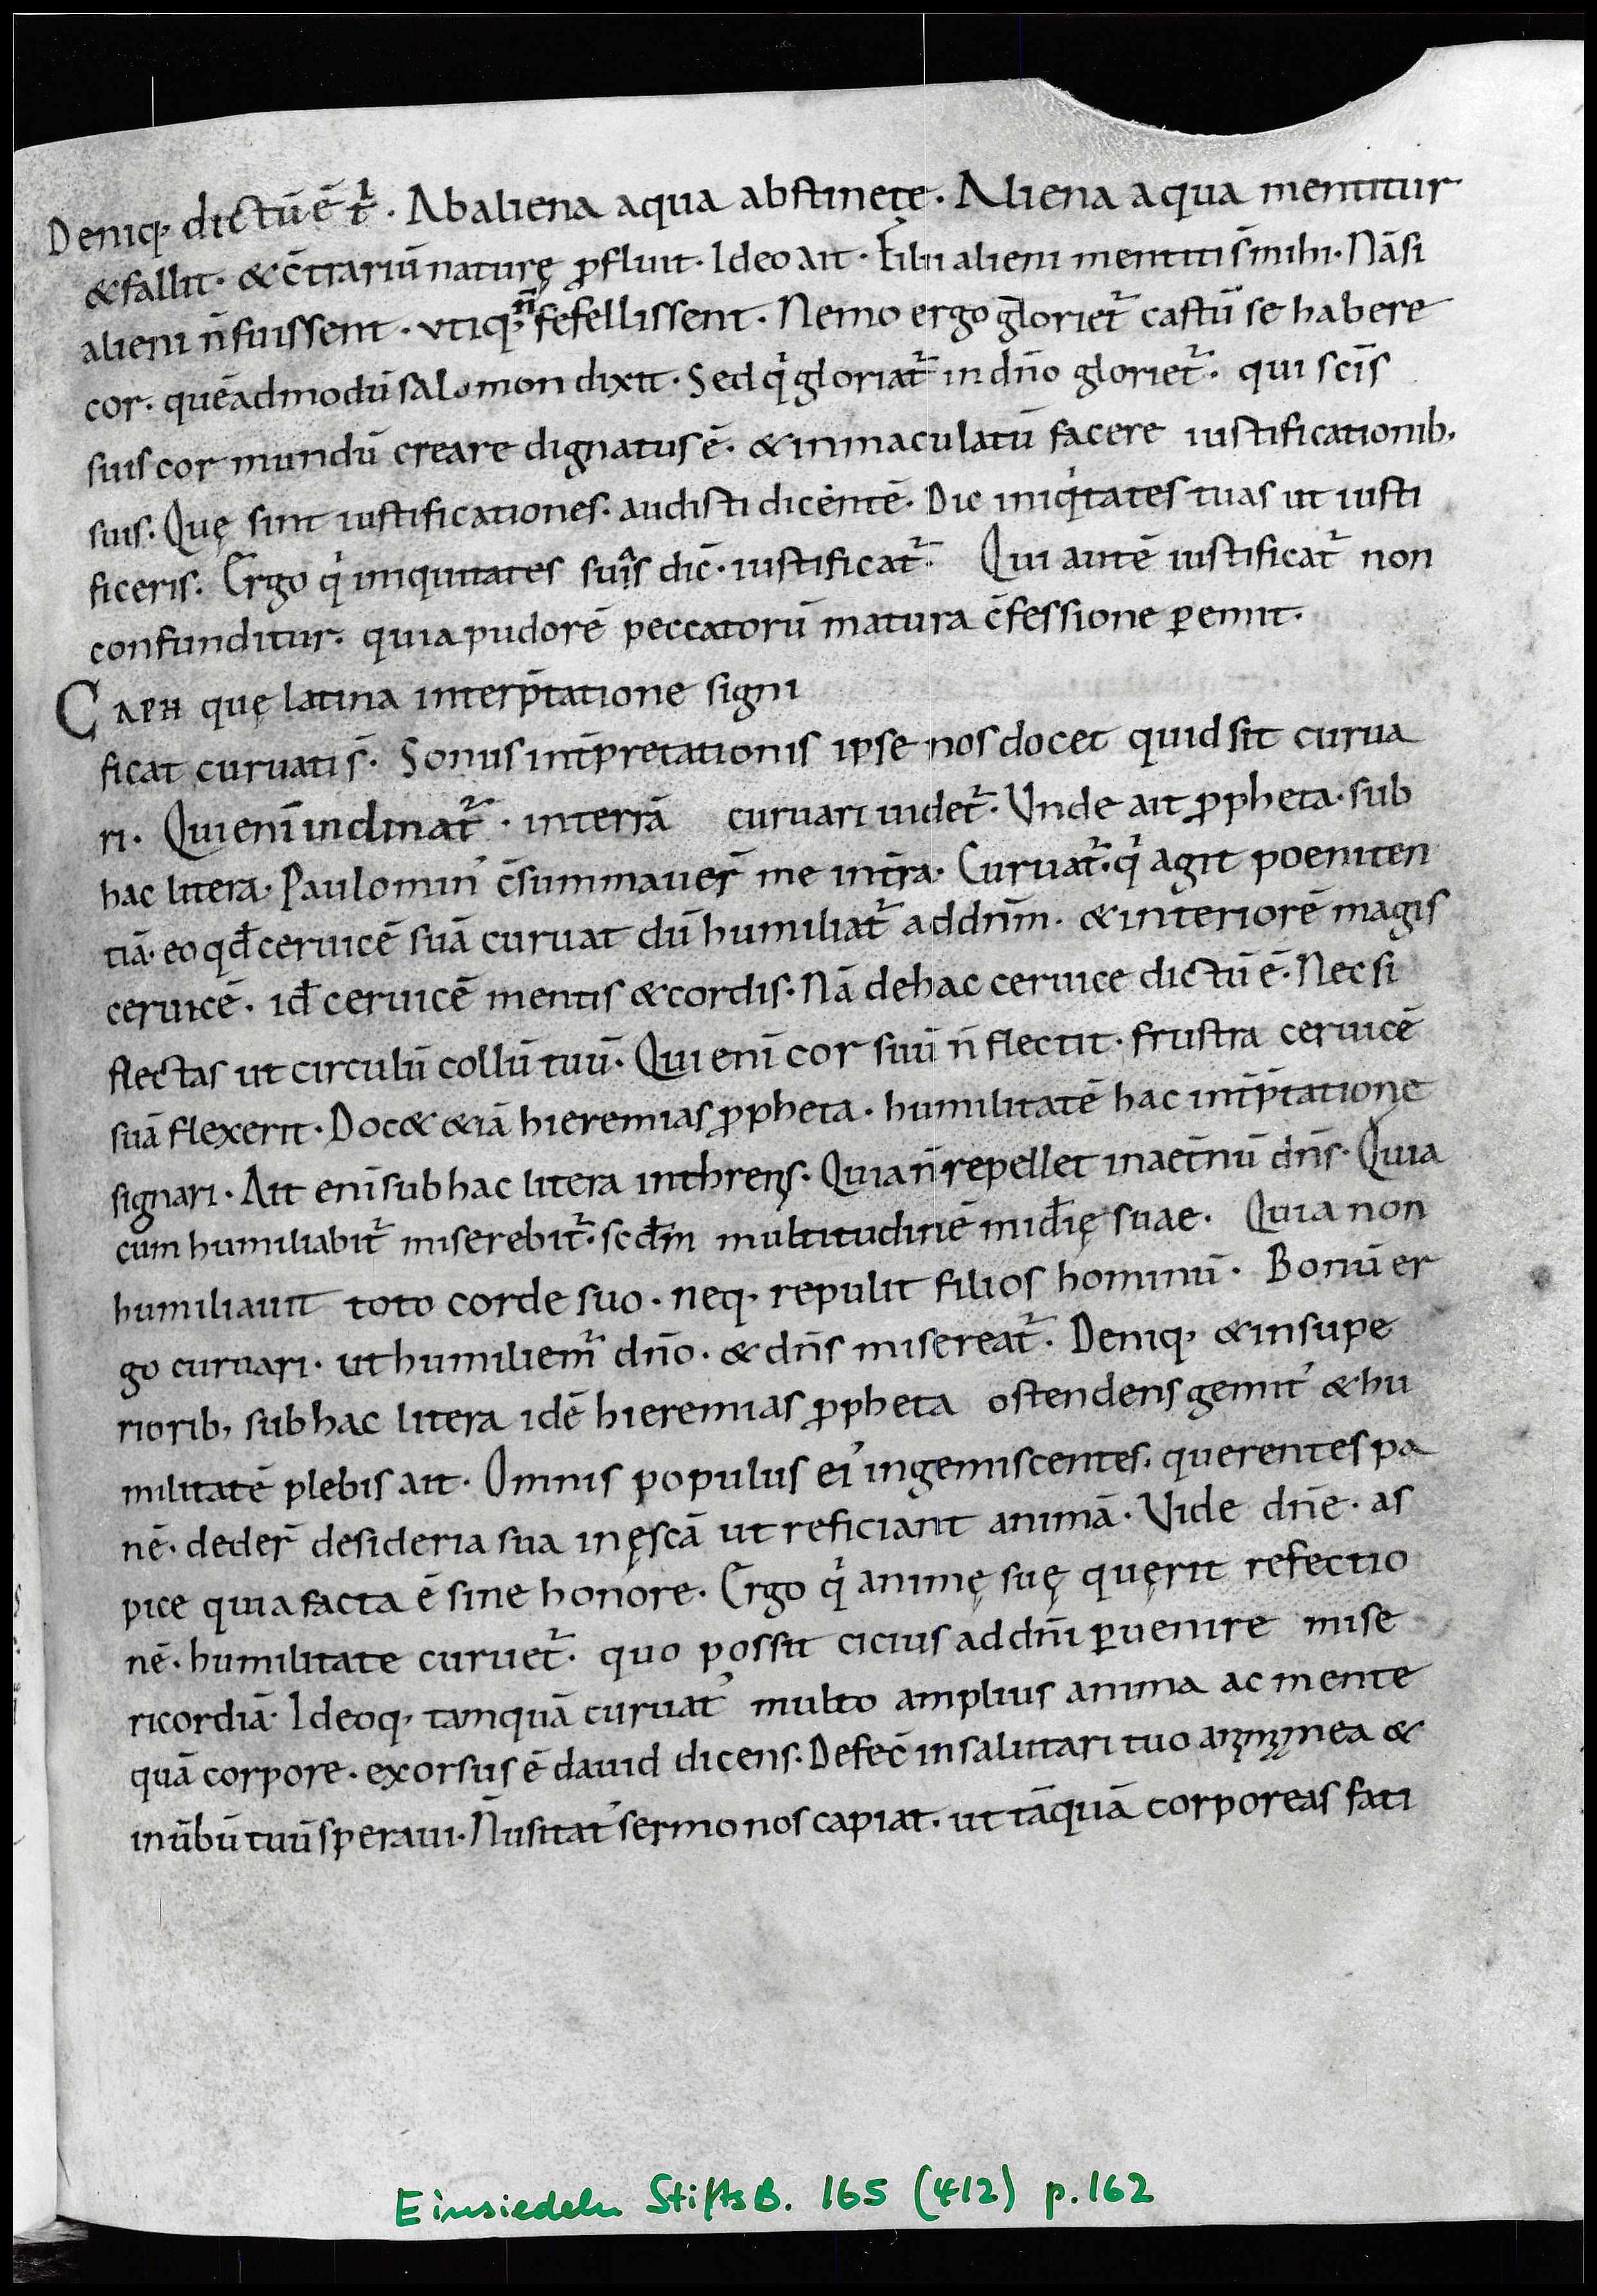 Deniq; dictū ē tͥ. Ab aliena aqua abstinete. Aliena aqua mentitur
& fallit. & c̄trariū naturę ꝓfluit. Ideo ait. Filii alieni mentiti s̄ mihi. Nā si
alieni n̄ fuissent. utiq; n̄ fefellissent. Nemo ergo glorietᷣ castū se habere
cor. quēadmodū salomon dixit. Sed qͥ gloriatᷣ in dn̄o glorietᷣ. qui sc̄is
suis cor mundū creare dignatus ē. & inmaculatū facere iustificationib;
suis. Quę sint iustificationes. audisti dicentē. Dic iniqͥtates tuas ut iusti
ficeris. Ergo qͥ iniquitates suas dic̄. iustificatᷣ. Qui autē iustificatᷣ non
confunditur. quia pudorē peccatorū matura c̄fessione ꝑemit.
CAPH quę latina interp̄tatione signi
ficat curuati s̄. Sonus int̄pretationis ipse nos docet quid sit curua
ri. Qui enī inclinatᷣ. in terrā curuari uidetᷣ. Unde ait ꝓpheta. sub
hac litera. Paulomin᾽ c̄summauer̄ me in t̄ra. Curuatᷣ. qͥ agit poeniten
tiā. eo qđ ceruicē suā curuat dū humiliatᷣ ad dn̄m. & interiorē magis
ceruicē. id̄ ceruicē mentis & cordis. Nā de hac ceruice dictū ē. Nec si
flectas ut circulū collū tuū. Qui enī cor suū n̄ flectit. frustra ceruicē
suā flexerit. Doc& &iā hieremias ꝓpheta. humilitatē hac int̄p̄tatione
signari. Ait enī sub hac litera in threnꝭ. Quia n̄ repellet in aet̄nū dn̄s. Quia
cum humiliabitᷣ miserebitᷣ. scd̄m multitudinē miđię suae. Quia non
humiliauit toto corde suo. neq; repulit filios hominū. Bonū er
go curuari. ut humiliemᷣ dn̄o. & dn̄s misereatᷣ. Deniq; & in supe
riorib; sub hac litera idē hieremias ꝓpheta ostendens gemit᾽ & hu
militatē plebis ait. Omnis populus ei᾽ ingemiscentes. querentes pa
nē. deder̄ desideria sua in ęscā ut reficiant animā. Vide dn̄e. as
pice quia facta ē sine honore. Ergo qͥ animę suę quęrit refectio
nē. humilitate curuetᷣ. quo possit cicius ad dn̄i ꝑuenire mise
ricordiā. Ideoq; tamquā curuat᾽ multo amplius anima ac mente
quā corpore. exorsus ē dauid dicens. Defec̄ in salutari tuo anima mea &
in ūbū tuū speraui. N̄ usitat᾽ sermo nos capiat. ut tāquā corporeas fati
Einsiedeln StiftsB. 165 (412) p. 162